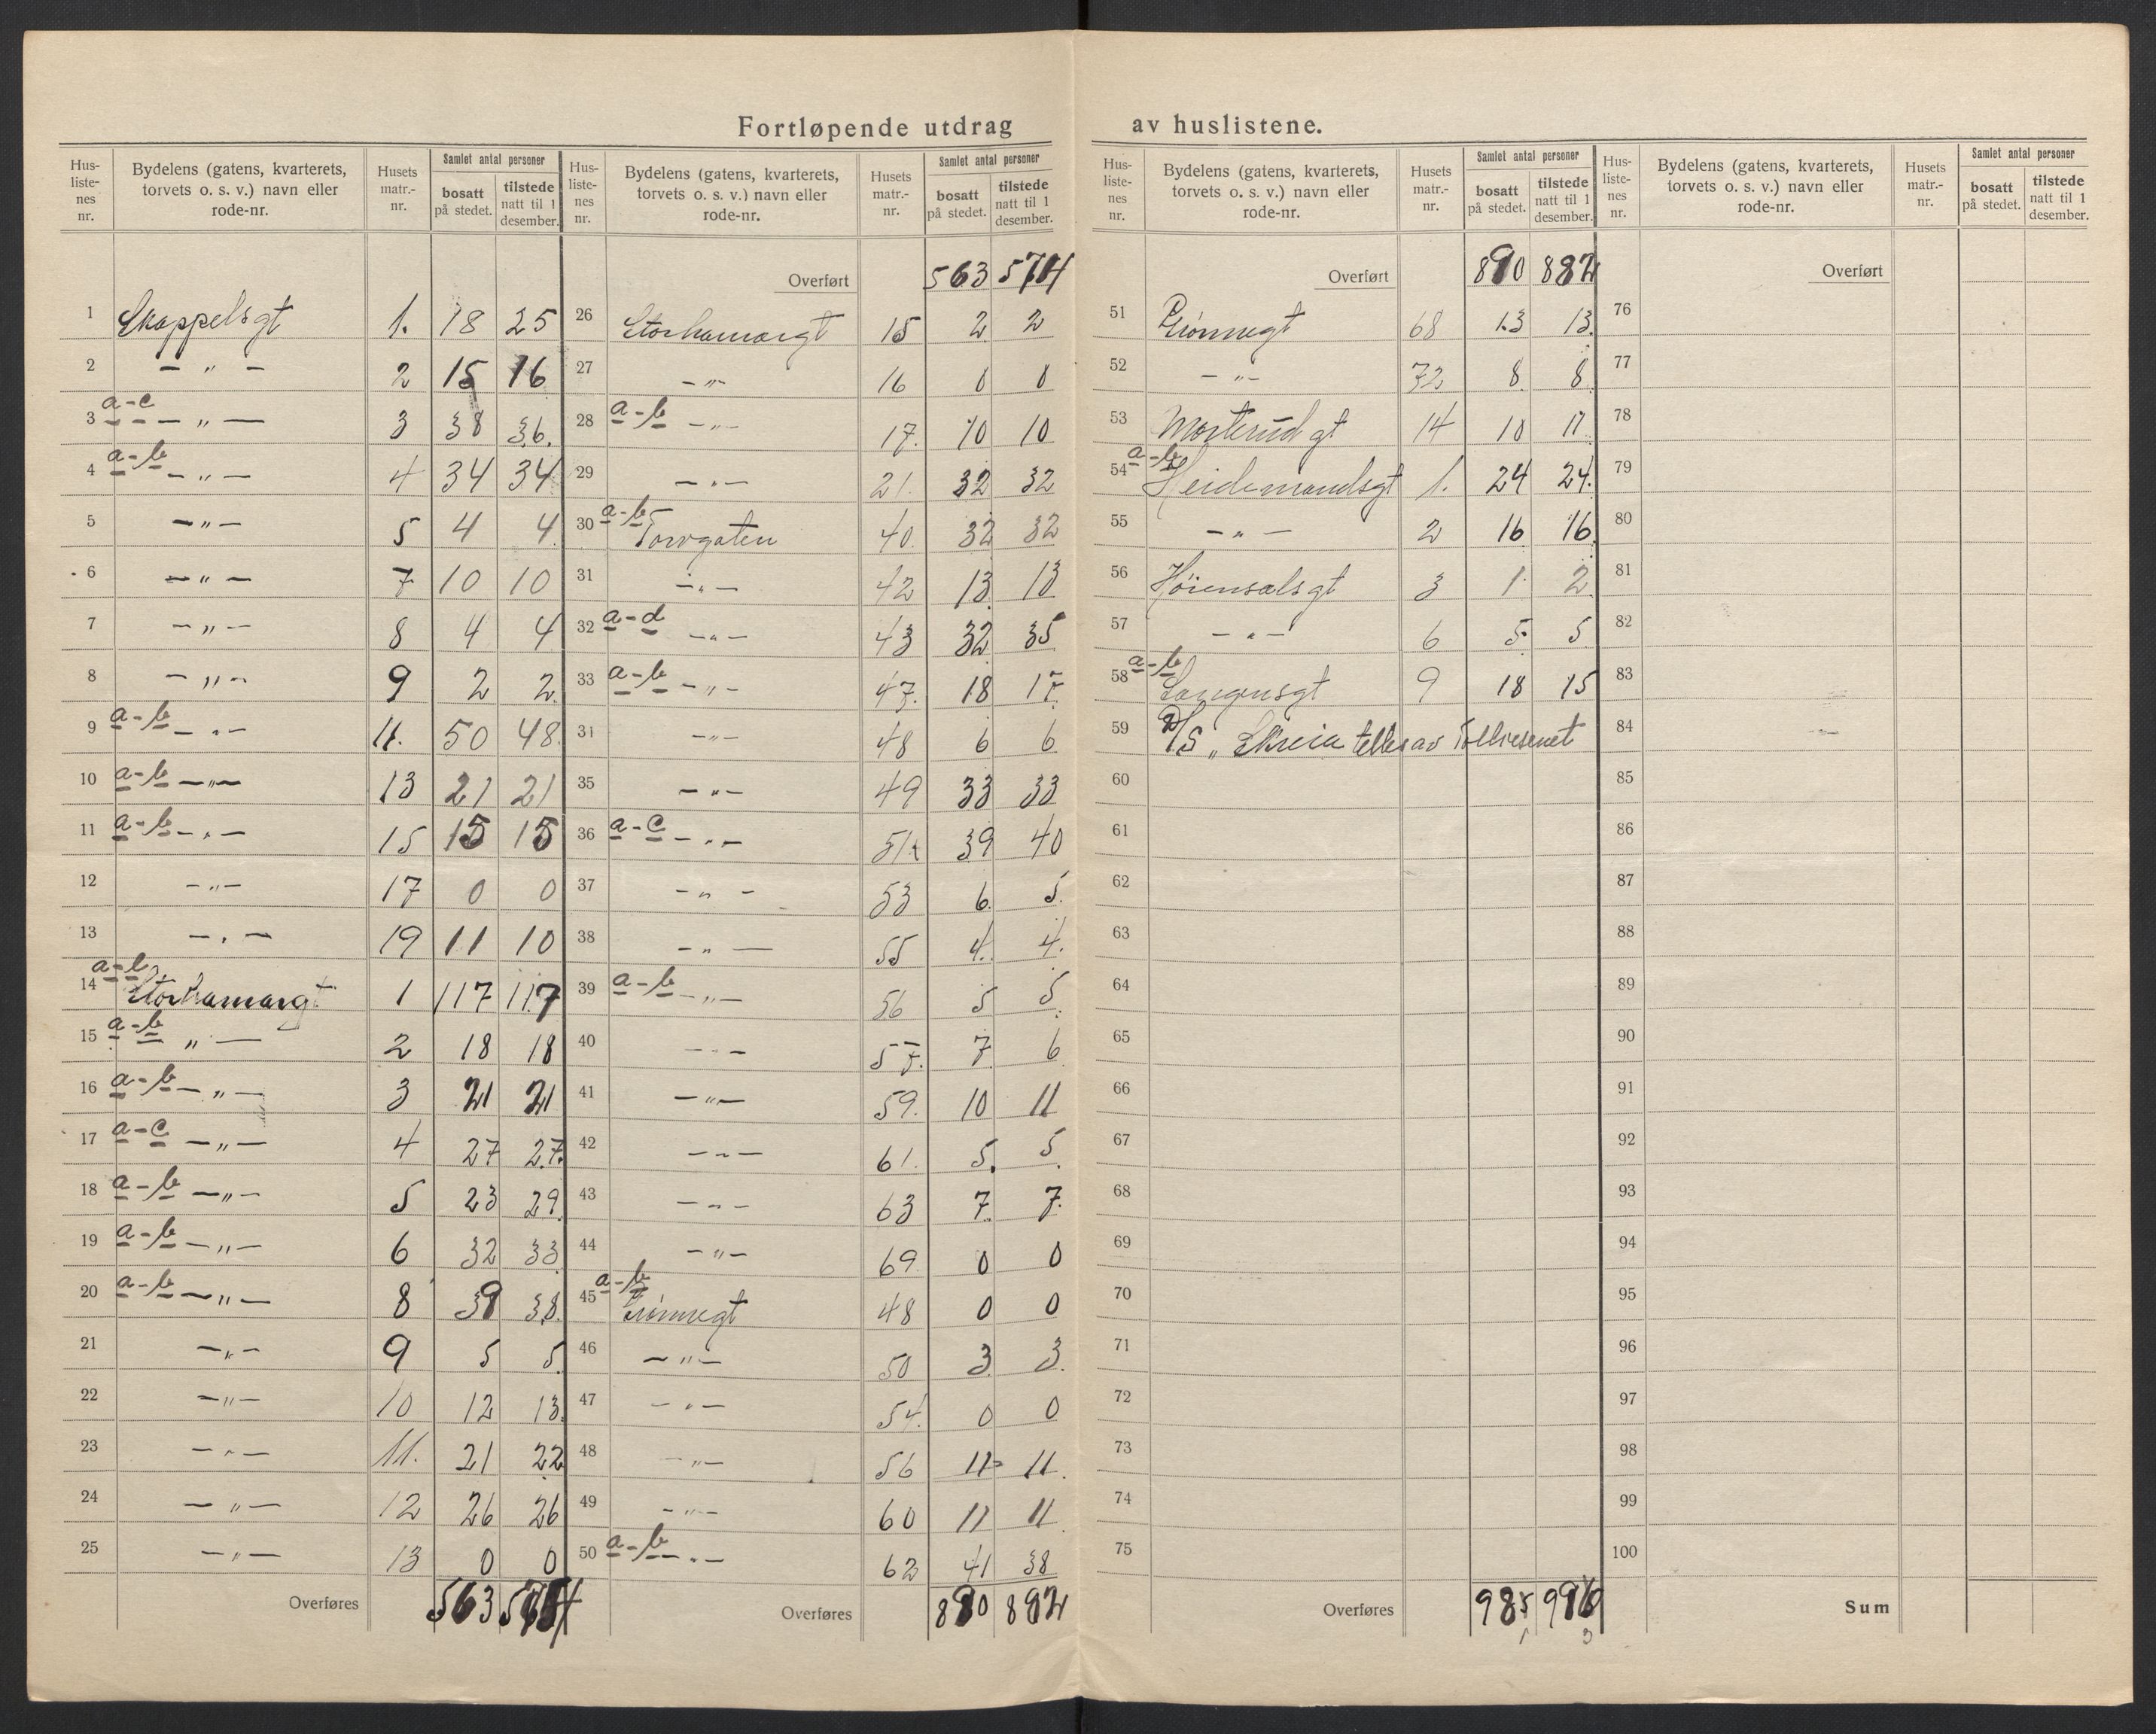 Fortløpende utdrag av huslistene.
Hus-liste-nes nr. | Bydelens (gatens, kvarterets, torvets o. s. v.) navn eller rode-nr. | Husets matr.-nr. | Samlet antal personer bosatt på stedet. | tilstede natt til 1 desember.
1 Skappelsgt 1. 18 25
2 — „ — 2 15 16
3 a-c — „ — 3 38 36.
4 a-b — „ — 4 34 34
5 — „ — 5 4 4
6 — „ — 7 10 10
7 — „ — 8 4 4
8 — „ — 9 2 2
9 a-b — „ — 11. 50 48
10 a-b — „ — 13 21 21
11 a-b — „ — 15 15 15
12 — „ — 17 0 0
13 — „ — 19 11 10
14 a-b Storhamargt 1 117 117
15 a-b — „ — 2 18 18
16 a-b — „ — 3 21 21
17 a-c — „ — 4 27 27.
18 a-b — „ — 5 23 29
19 a-b — „ — 6 32 33
20 a-b — „ — 8 39 38
21 — „ — 9 5 5
22 — „ — 10 12 13
23 — „ — 11. 21 22
24 — „ — 12 26 26
25 — „ — 13 0 0
Overføres 563
Hus-liste-nes nr. | Bydelens (gatens, kvarterets, torvets o. s. v.) navn eller rode-nr. | Husets matr.-nr. | Samlet antal personer bosatt på stedet. | tilstede natt til 1 desember.
Overført 563 574
26 Storhamargt 15 2 2
27 — „ — 16 0 0
28 a-b — „ — 17. 10 10
29 — „ — 21. 32 32
30 a-b Torvgaten 40. 32 32
31 — „ — 42 13 13
32 a-d — „ — 43 32 35
33 a-b — „ — 47. 18 17.
34 — „ — 48 6 6
35 — „ — 49 33 33
36 a-c — „ — 51 39 40
37 — „ — 53 6 5
38 — „ — 55 4. 4.
39 a-b — „ — 56 5 5
40 — „ — 57. 7 6
41 — „ — 59. 10 11
42 — „ — 61. 5. 5
43 — „ — 63 7 7.
44 — „ — 69 0 0
45 a-b Grønnegt 48 0 0
46 — „ — 50 3 3.
47 — „ — 54. 0 0
48 — „ — 56 11 11.
49 — „ — 60 11 11
50 a-b — „ — 62 41 38
Overføres 890 892
Hus-liste-nes nr. | Bydelens (gatens, kvarterets, torvets o. s. v.) navn eller rode-nr. | Husets matr.-nr. | Samlet antal personer bosatt på stedet. | tilstede natt til 1 desember.
Overført 890 892
51 Grønnegt 68 13 13.
52 — „ — 72 8 8
53 Morterudgt 14 10 11
54 a-b Heidemandsgt 1. 24 24.
55 — „ — 2 16 16
56 Høiensalsgt 3 1 2
57 — „ — 6 5 5
58 a-b Langensgt 9 18 15
59 D/S „ Skreia telles av Tollvesenet
60
61
62
63
64
65
66
67
68
69
70
71
72
73
74
75
Overføres 985
Hus-liste-nes nr. | Bydelens (gatens, kvarterets, torvets o. s. v.) navn eller rode-nr. | Husets matr.-nr. | Samlet antal personer bosatt på stedet. | tilstede natt til 1 desember.
Overført
76
77
78
79
80
81
82
83
84
85
86
87
88
89
90
91
92
93
94
95
96
97
98
99
100
Sum